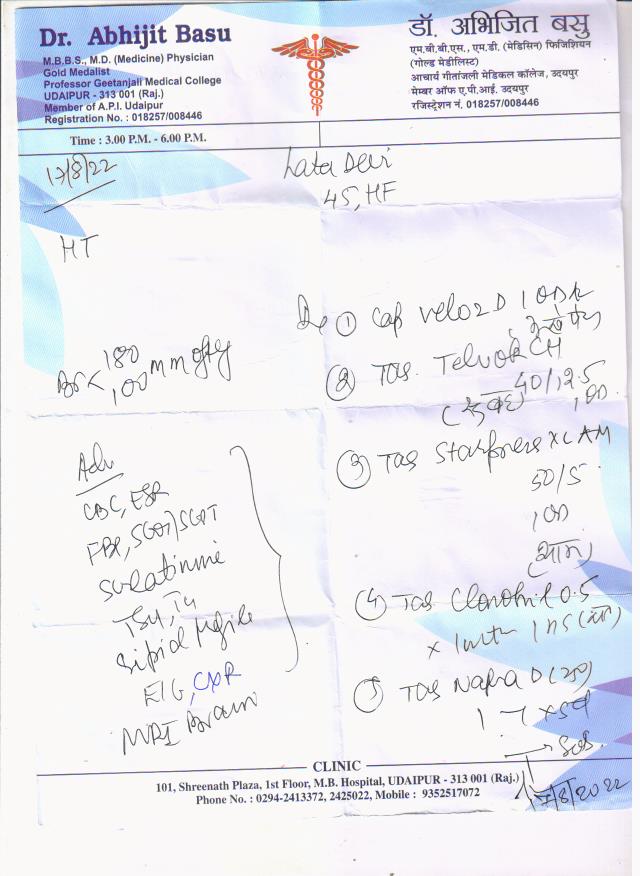 Dr. Abhijit Basu
M.B.B.S., M.D. (Medicine) Physician
Gold Medalist
Professor Geetanjali Medical College
UDAIPUR - 313 001 (Raj.)
Member of A.P.I. Udaipur
Registration No. : 018257/008446
Time : 3.00 P.M. - 6.00 P.M.
डॉ. अभिजित बसु
एम.बी.बी.एस., एम.डी. (मेडिसिन) फिजिशियन
(गोल्ड मेडीलिस्ट)
आचार्य गीतांजली मेडिकल कॉलेज, उदयपुर
मेम्बर ऑफ ए.पी.आई. उदयपुर
रजिस्ट्रेशन नं. 018257/008446
17/8/22
Lata Devi
45, HF
HT
180
100 mm of Hg
Adv
CBC, ESR
SGOT/SGPT
TSH, T4
Lipid Profile
CXR
MRI Brain
① Cap Veloz D 1 OD
② Tab. Telvok CH
40/12.5
1 OD
③ Tab Starpress XL AM
50/5
1 OD
(शाम)
④ Tab Clonotril 0.5
1 HS
⑤ Tab Napra D
SOS
17/8/2022
CLINIC
101, Shreenath Plaza, 1st Floor, M.B. Hospital, UDAIPUR - 313 001 (Raj.)
Phone No. : 0294-2413372, 2425022, Mobile : 9352517072